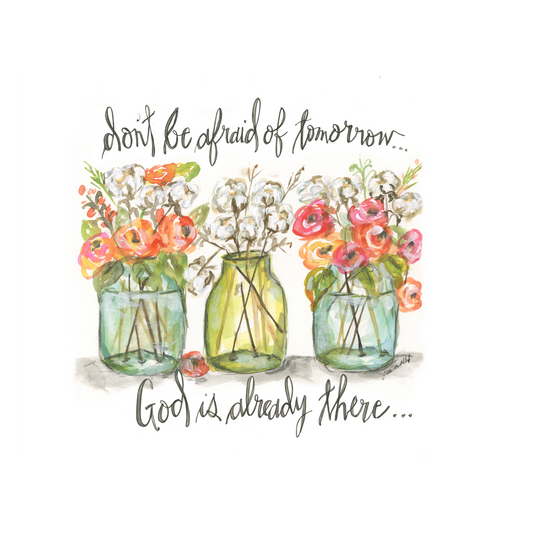 don't be afraid of tomorrow...
God is already there...